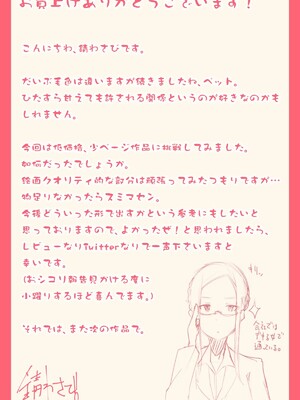 お買上げありがとうございます！
こんにちわ、錆わさびです。
だいぶ毛色は違いますが続きましたね、ペット。
ひたすら甘えても許される関係というのが好きなのかも
しれません。
今回は低価格、少ページ作品に挑戦してみました。
如何だったでしょうか。
絵画クオリティ的な部分は頑張ってみたつもりですが…
物足りなかったらスミマセン。
今後どういった形で出すかという参考にもしたいと
思っておりますので、よかったぜ！と思われましたら、
レビューなりTwitterなりで一言下さいますと
幸いです。
(おシコリ報告見かける度に
小躍りするほど喜んでます。)
それでは、また次の作品で。
錆わさび